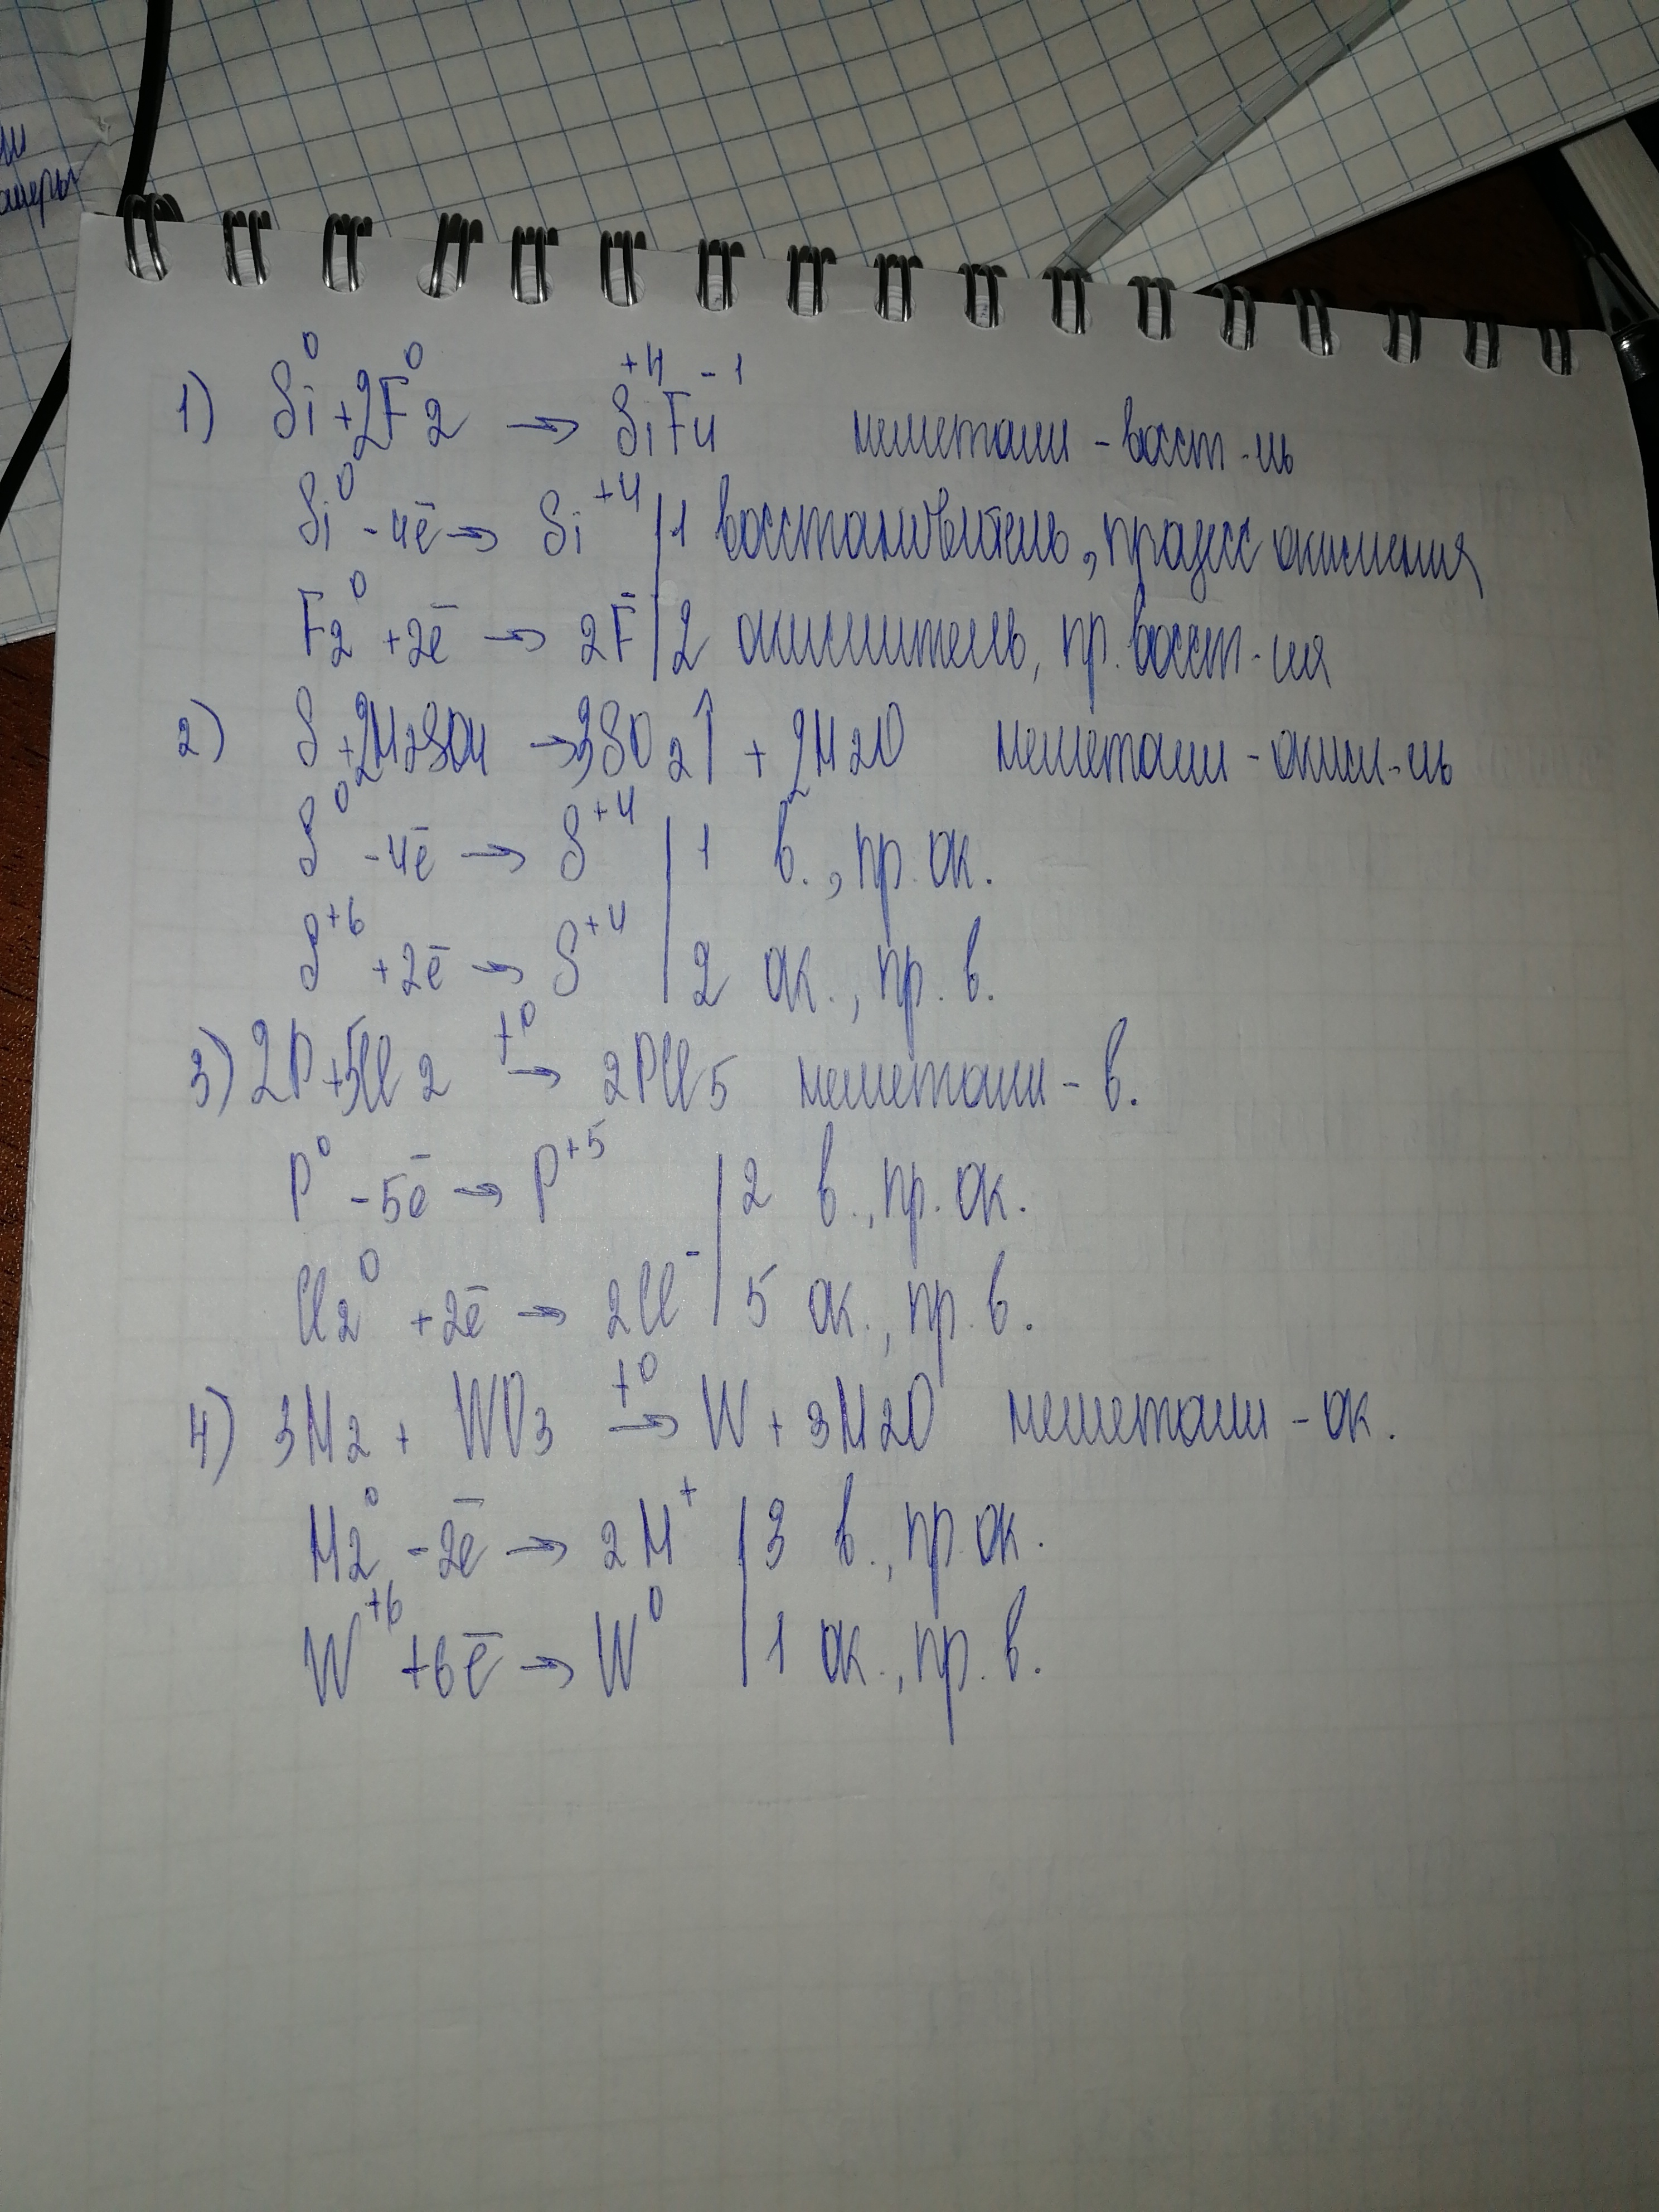 ли
амеры
1) Si⁰ + 2F₂⁰ → Si⁺⁴F₄⁻¹ неметалл - восст-ль
Si⁰ - 4ē → Si⁺⁴ | 1 восстановитель, процесс окисления
F₂⁰ + 2ē → 2F⁻ | 2 окислитель, пр. восст-ия
2) S + 2H₂SO₄ → 3SO₂↑ + 2H₂O неметалл - окисл-ль
S⁰ - 4ē → S⁺⁴ | 1 в., пр. ок.
S⁺⁶ + 2ē → S⁺⁴ | 2 ок., пр. в.
3) 2P + 5Cl₂ →(t⁰) 2PCl₅ неметалл - в.
P⁰ - 5ē → P⁺⁵ | 2 в., пр. ок.
Cl₂⁰ + 2ē → 2Cl⁻ | 5 ок., пр. в.
4) 3H₂ + WO₃ →(t⁰) W + 3H₂O неметалл - ок.
H₂⁰ - 2ē → 2H⁺ | 3 в., пр ок.
W⁺⁶ + 6ē → W⁰ | 1 ок., пр. в.